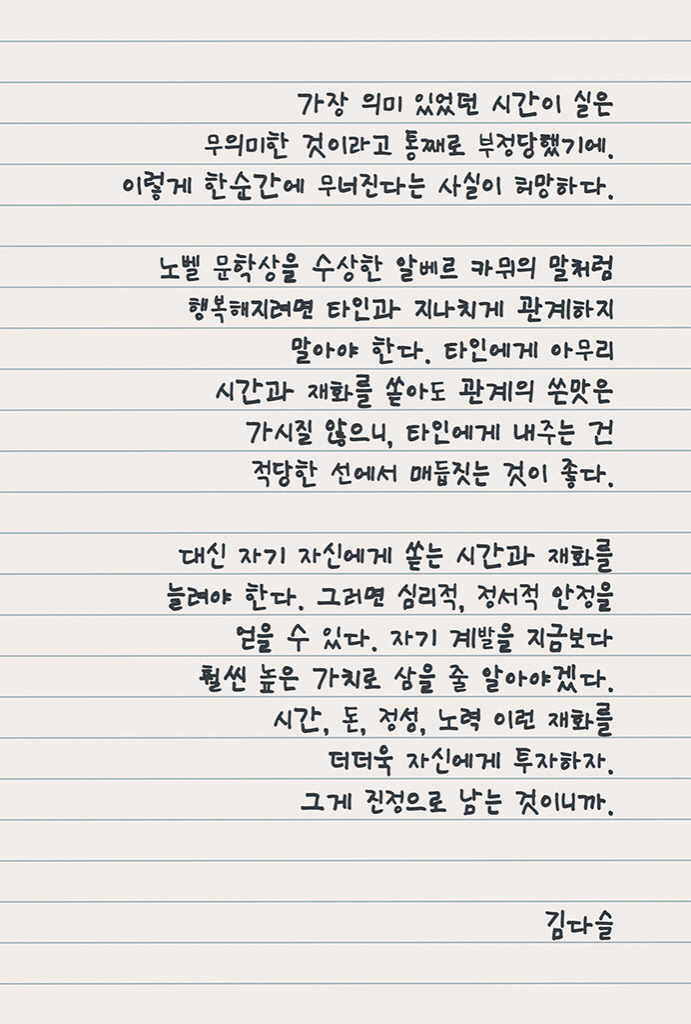 가장 의미 있었던 시간이 실은
무의미한 것이라고 통째로 부정당했기에.
이렇게 한순간에 무너진다는 사실이 허망하다.
노벨 문학상을 수상한 알베르 카뮈의 말처럼
행복해지려면 타인과 지나치게 관계하지
말아야 한다. 타인에게 아무리
시간과 재화를 쏟아도 관계의 쓴맛은
가시질 않으니, 타인에게 내주는 건
적당한 선에서 매듭짓는 것이 좋다.
대신 자기 자신에게 쏟는 시간과 재화를
늘려야 한다. 그러면 심리적, 정서적 안정을
얻을 수 있다. 자기 계발을 지금보다
훨씬 높은 가치로 삼을 줄 알아야겠다.
시간, 돈, 정성, 노력 이런 재화를
더더욱 자신에게 투자하자.
그게 진정으로 남는 것이니까.
김다슬